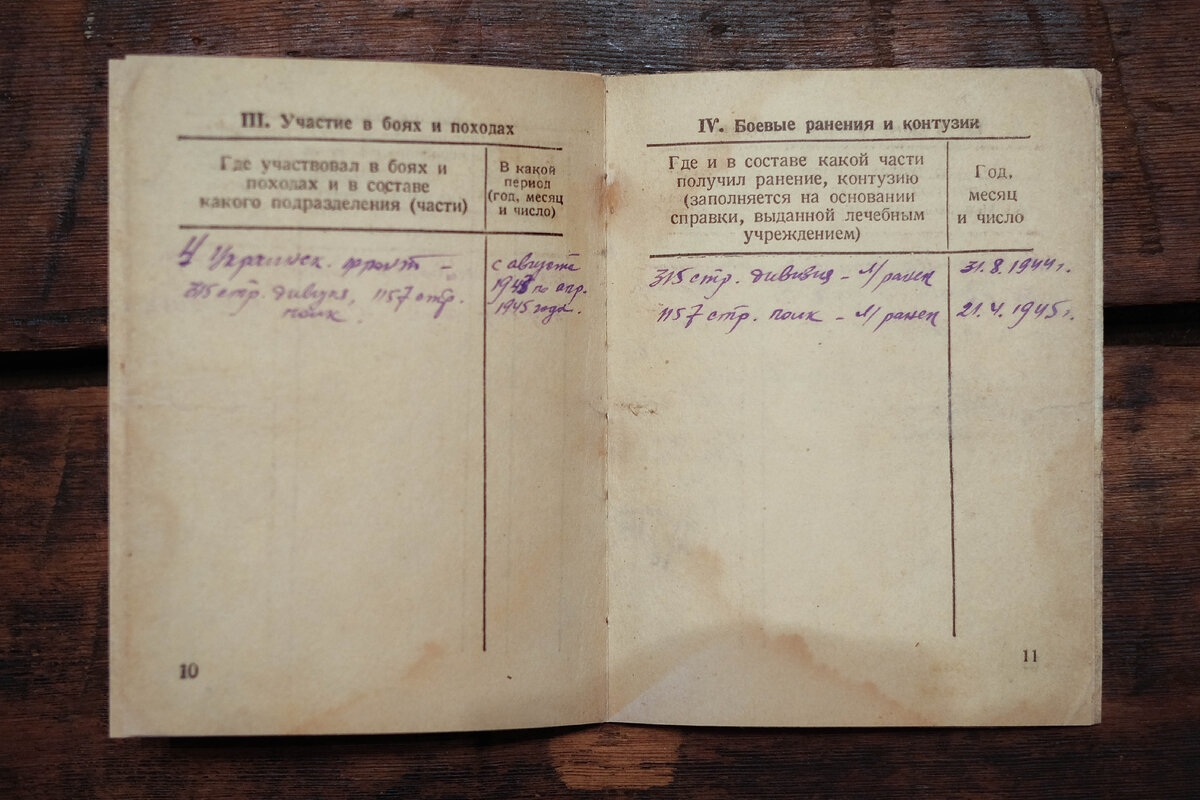 III. Участие в боях и походах
Где участвовал в боях и
походах и в составе
какого подразделения (части)
В какой
период
(год, месяц
и число)
4 Украинск. фронт –
315 стр. дивизия, 1157 стр.
полк.
с августа
1943 по апр.
1945 года.
10
IV. Боевые ранения и контузии
Где и в составе какой части
получил ранение, контузию
(заполняется на основании
справки, выданной лечебным
учреждением)
Год,
месяц
и число
315 стр. дивизия – л/ранен 31.8.1944г.
1157 стр. полк – л/ранен 21.4.1945г.
11